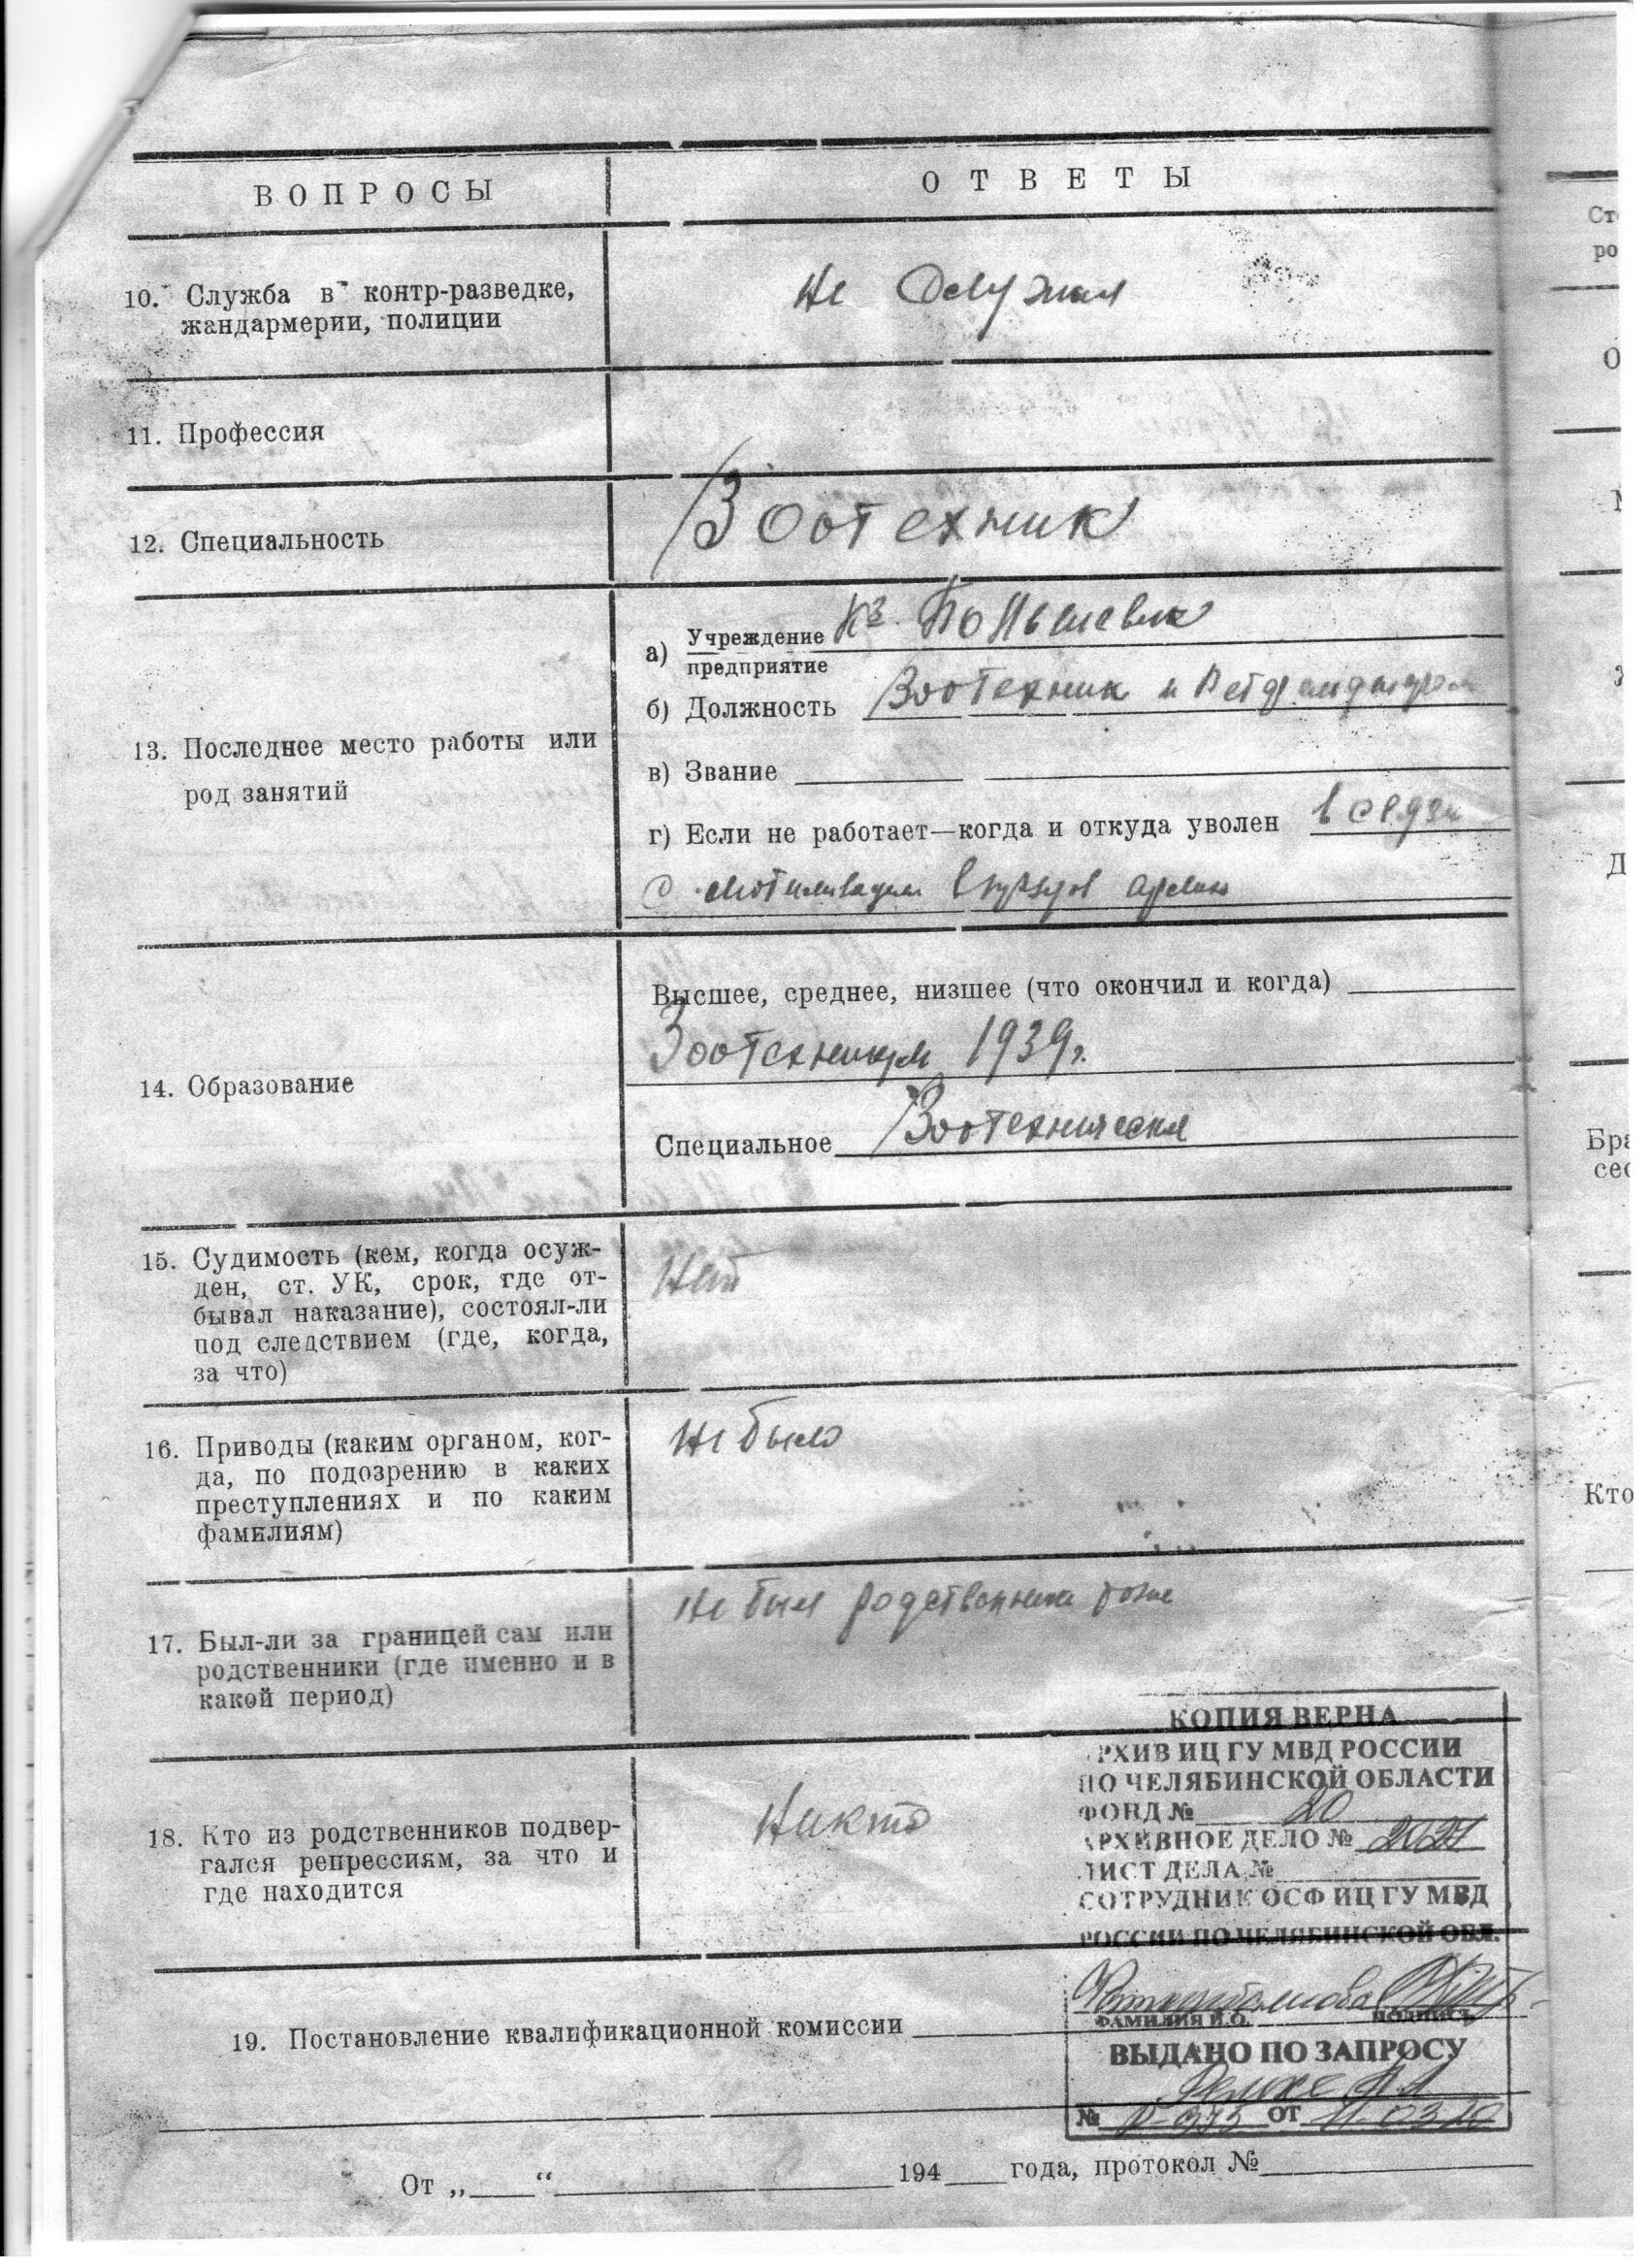 ВОПРОСЫ
ОТВЕТЫ
10. Служба в контр-разведке,
жандармерии, полиции
Не Служил
11. Профессия
12. Специальность
Зоотехник
13. Последнее место работы или
род занятий
а) Учреждение
предприятие
б) Должность Зоотехник и
в) Звание
г) Если не работает—когда и откуда уволен в связи
с
14. Образование
Высшее, среднее, низшее (что окончил и когда)
Зоотехникум 1939г.
Специальное
15. Судимость (кем, когда осуж-
ден, ст. УК, срок, где от-
бывал наказание), состоял-ли
под следствием (где, когда,
за что)
Нет
16. Приводы (каким органом, ког-
да, по подозрению в каких
преступлениях и по каким
фамилиям)
Не было
17. Был-ли за границей сам или
родственники (где именно и в
какой период)
Не был родственники тоже
18. Кто из родственников подвер-
гался репрессиям, за что и
где находится
Никто
19. Постановление квалификационной комиссии
От „ “ 194 года, протокол №
КОПИЯ ВЕРНА
АРХИВ ИЦ ГУ МВД РОССИИ
ПО ЧЕЛЯБИНСКОЙ ОБЛАСТИ
ФОНД № 20
АРХИВНОЕ ДЕЛО №
ЛИСТ ДЕЛА №
СОТРУДНИК ОСФ ИЦ ГУ МВД
РОССИИ ПО ЧЕЛЯБИНСКОЙ ОБЛ.
ФАМИЛИЯ И.О. ПОДПИСЬ
ВЫДАНО ПО ЗАПРОСУ
№ ОТ 11.03.20
Ст
ро
О
Д
Бра
сес
Кто